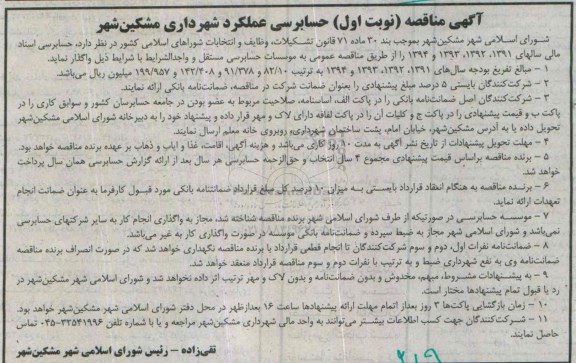 آگهی مناقصه (نوبت اول) حسابرسی عملکرد شهرداری مشکین‌شهر
شورای اسلامی شهر مشکین‌شهر بموجب بند ۳۰ ماده ۷۱ قانون تشکیلات، وظایف و انتخابات شوراهای اسلامی کشور در نظر دارد، حسابرسی اسناد
مالی سالهای ۱۳۹۱، ۱۳۹۲، ۱۳۹۳ و ۱۳۹۴ را از طریق مناقصه عمومی به موسسات حسابرسی مستقل و واجدالشرایط با شرایط ذیل واگذار نماید.
۱ – مبالغ تفریغ بودجه سال‌های ۱۳۹۱، ۱۳۹۲، ۱۳۹۳ و ۱۳۹۴ به ترتیب ۸۲/۱۰ و ۹۱/۳۷۸ و ۱۴۲/۴۰۸ و ۱۹۹/۹۵۷ میلیون ریال می‌باشد.
۲ – شرکت‌کنندگان بایستی ۵ درصد مبلغ پیشنهادی را بعنوان ضمانت شرکت در مناقصه، ضمانت‌نامه بانکی ارائه نمایند.
۳ – شرکت‌کنندگان اصل ضمانت‌نامه بانکی را در پاکت الف، اساسنامه، صلاحیت مربوط به عضو بودن در جامعه حسابرسان کشور و سوابق کاری را در
پاکت ب و قیمت پیشنهادی را در پاکت ج و کلیات آن را در پاکت لفافه دارای لاک و مهر قرار داده و پیشنهاد خود را به دبیرخانه شورای اسلامی مشکین‌شهر
تحویل داده یا به آدرس مشکین‌شهر، خیابان امام، پشت ساختمان شهرداری، روبروی خانه معلم ارسال نمایند.
۴ – مهلت تحویل پیشنهادات از تاریخ نشر آگهی به مدت ۱۰ روز کاری می‌باشد و هزینه آگهی، اقامت، غذا و ایاب و ذهاب بر عهده برنده مناقصه خواهد بود.
۵ – برنده مناقصه براساس قیمت پیشنهادی مجموع ۴ سال انتخاب و حق‌الزحمه حسابرسی هر سال بعد از ارائه گزارش حسابرسی همان سال پرداخت
خواهد شد.
۶ – برنده مناقصه به هنگام انعقاد قرارداد بایستی به میزان ۱۰ درصد کل مبلغ قرارداد ضمانتنامه بانکی مورد قبول کارفرما به عنوان ضمانت انجام
تعهدات ارائه نماید.
۷ – موسسه حسابرسی در صورتیکه از طرف شورای اسلامی شهر برنده مناقصه شناخته شد، مجاز به واگذاری انجام کار به سایر شرکتهای حسابرسی
نمی‌باشد و شورای اسلامی شهر مجاز به ضبط سپرده و ضمانت‌نامه بانکی موسسه در صورت واگذاری کار به غیر می‌باشد.
۸ – ضمانت‌نامه نفرات اول، دوم و سوم شرکت‌کنندگان تا انجام قطعی قرارداد با برنده مناقصه نگهداری خواهد شد که در صورت انصراف برنده مناقصه
ضمانت‌نامه وی به نفع شهرداری ضبط و به ترتیب با نفرات دوم و سوم مناقصه قرارداد منعقد خواهد شد.
۹ – به پیشنهادات مشروط، مبهم، مخدوش و بدون ضمانت‌نامه و بدون لاک و مهر ترتیب اثر داده نخواهد شد و شورای اسلامی شهر مشکین‌شهر در
رد یا قبول تمام پیشنهادها مختار است.
۱۰ – زمان بازگشایی پاکت‌ها ۳ روز بعداز اتمام مهلت ارائه پیشنهادها ساعت ۱۶ بعدازظهر در محل دفتر شورای اسلامی شهر مشکین‌شهر خواهد بود.
۱۱ – شرکت‌کنندگان جهت کسب اطلاعات بیشتر می‌توانند به واحد مالی شهرداری مشکین‌شهر مراجعه و یا با شماره تلفن ۳۲۵۴۱۹۹۶–۰۴۵ تماس
حاصل نمایند.
تقی‌زاده – رئیس شورای اسلامی شهر مشکین‌شهر